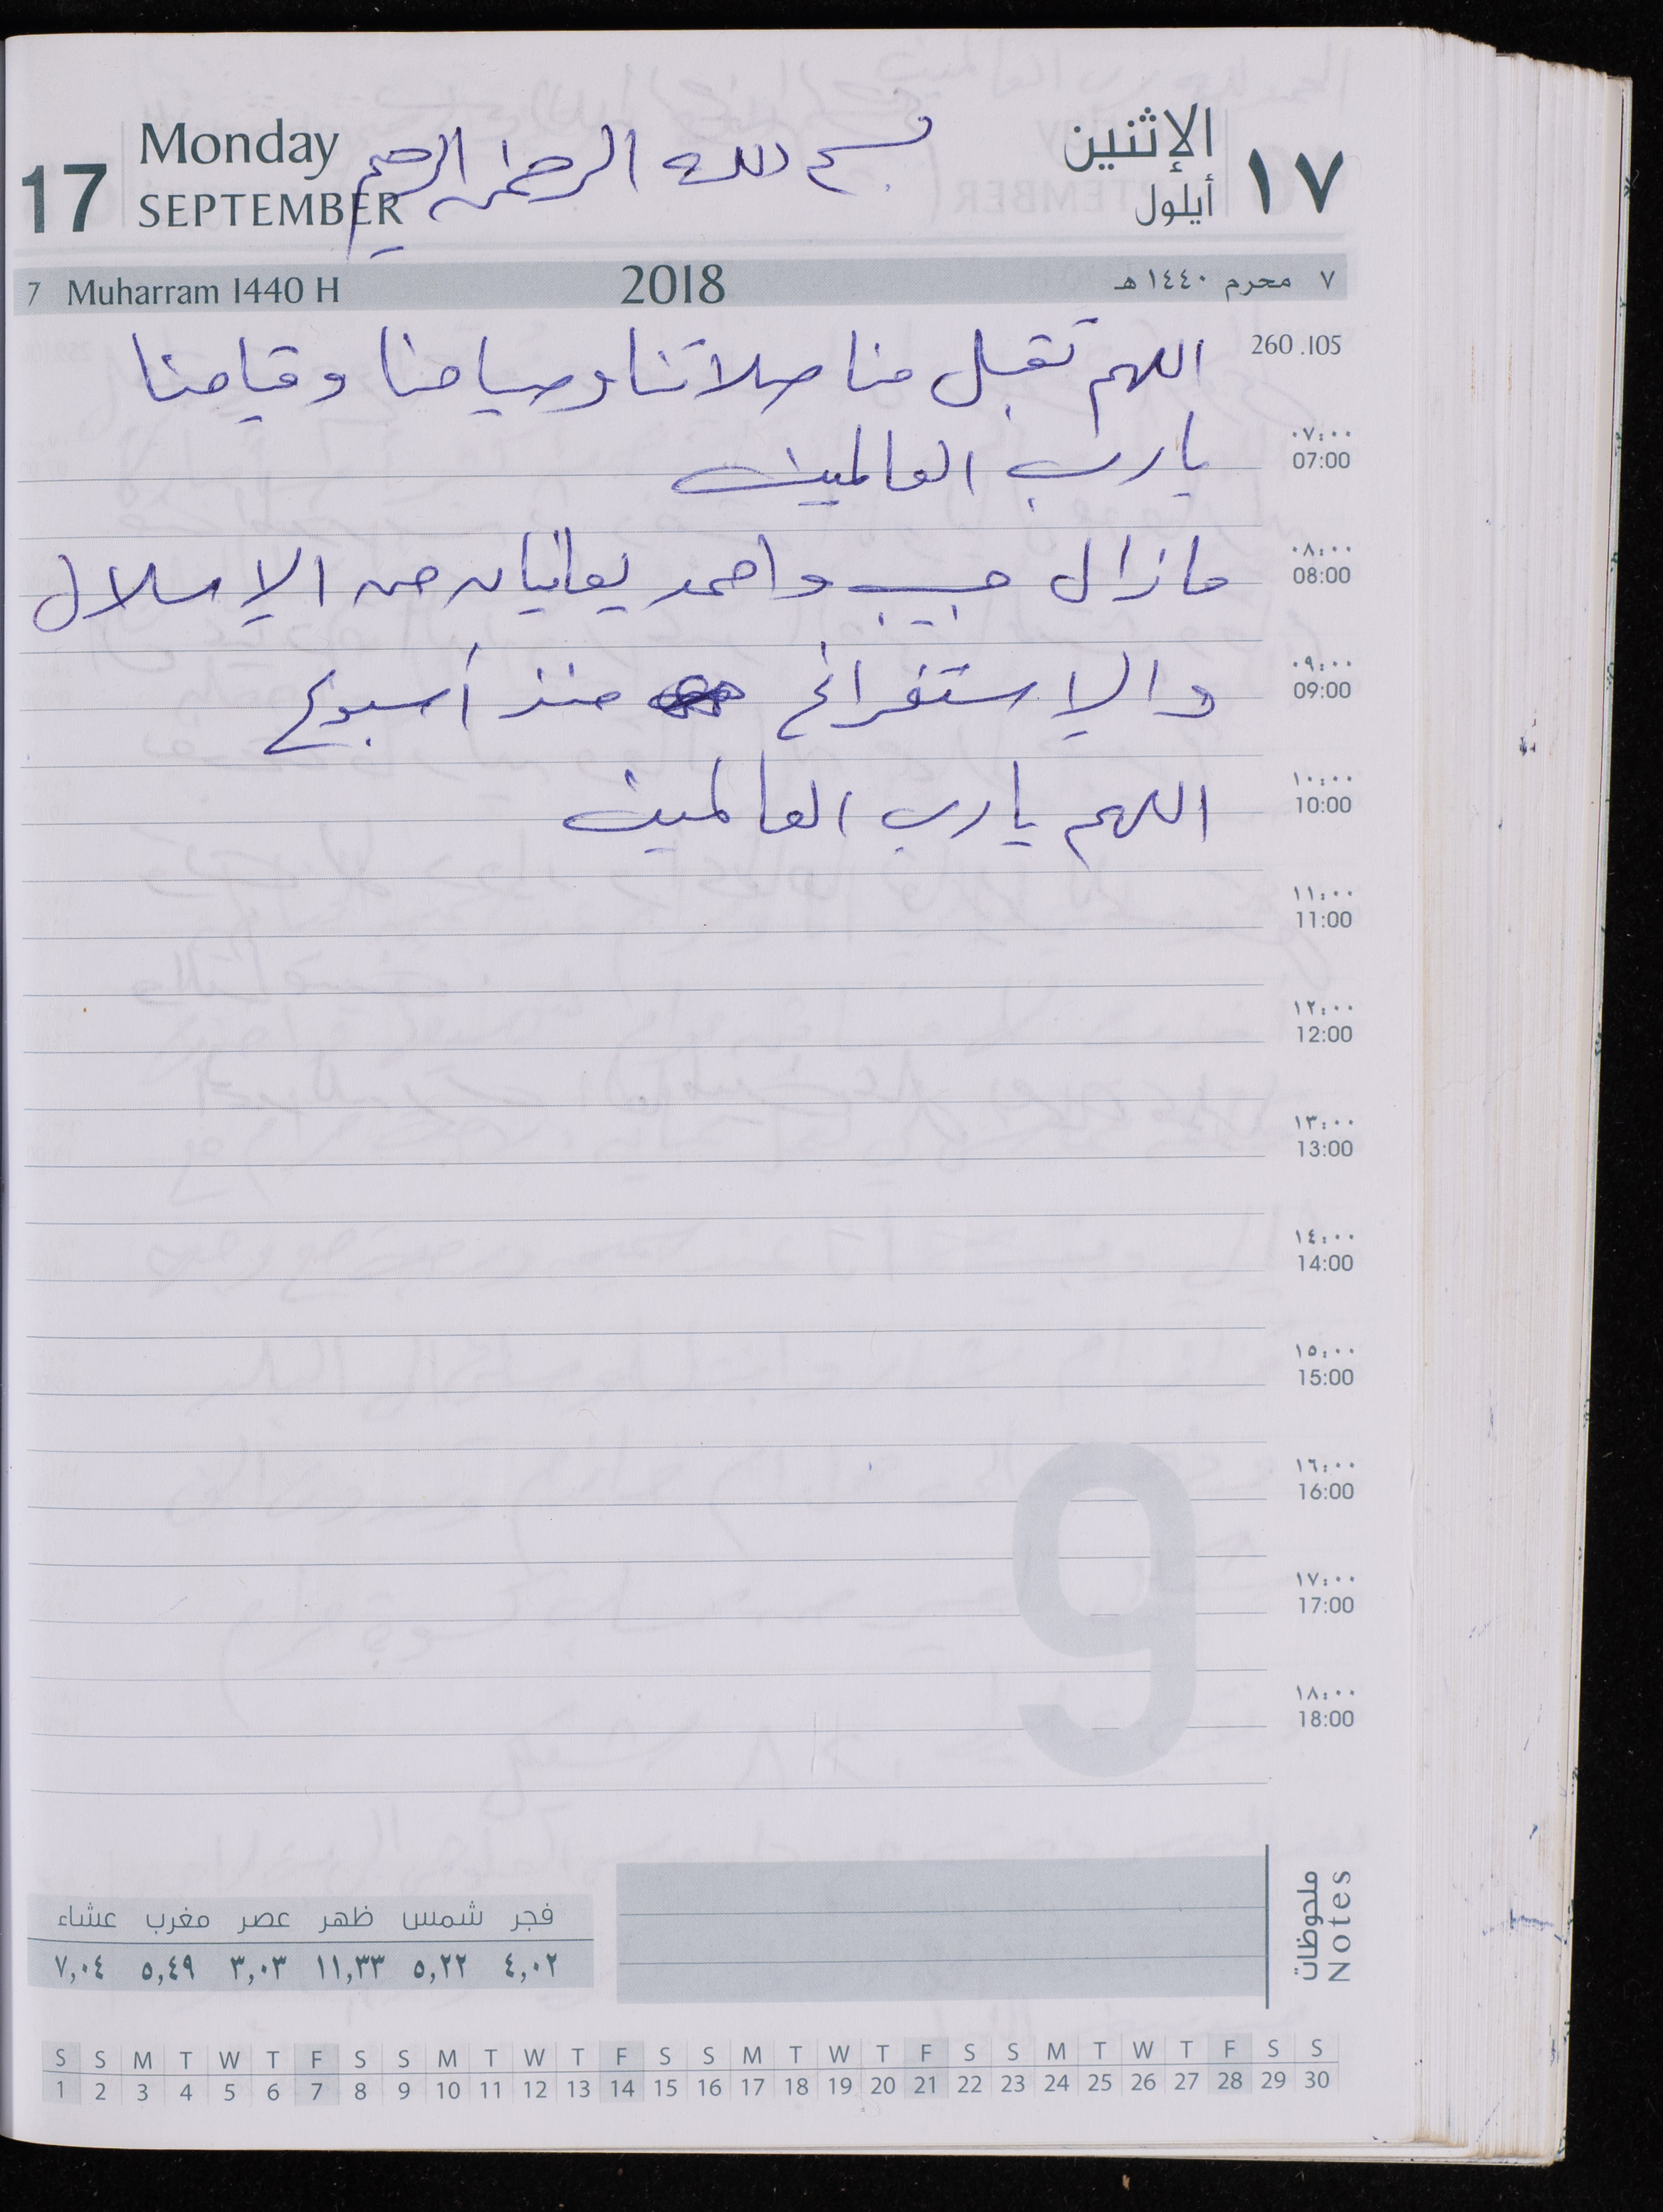 17
Monday
SEPTEMBER
بسم الله الرحمن الرحيم
الإثنين
أيلول
١٧
7 Muharram 1440 H
2018
٧ محرم ١٤٤٠ هـ
260 .105
اللهم تقبل منا صلاتنا وصيامنا وقيامنا
٠٧:٠٠
07:00
يارب العالمين
٠٨:٠٠
08:00
مازال حبيب واحمد يعانيان من الإسلال
٠٩:٠٠
09:00
والإستفراغ منذ أسبوع
١٠:٠٠
10:00
اللهم يارب العالمين
١١:٠٠
11:00
١٢:٠٠
12:00
١٣:٠٠
13:00
١٤:٠٠
14:00
١٥:٠٠
15:00
١٦:٠٠
16:00
9
١٧:٠٠
17:00
١٨:٠٠
18:00
ملحوظات
Notes
فجر شمس ظهر عصر مغرب عشاء
٤,٠٢ ٥,٢٢ ١١,٣٣ ٣,٠٣ ٥,٤٩ ٧,٠٤
S S M T W T F S S M T W T F S S M T W T F S S M T W T F S S
1 2 3 4 5 6 7 8 9 10 11 12 13 14 15 16 17 18 19 20 21 22 23 24 25 26 27 28 29 30